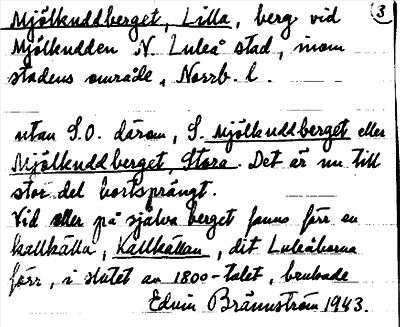 Mjölkuddberget, Lilla, berg vid
Mjölkudden N. Luleå stad, inom
stadens område, Norrb. l.
utan S.O. därom, S. Mjölkuddberget eller
Mjölkuddberget, Stora. Det är nu till
stor del bortsprängt.
Vid eller på själva berget fanns förr en
kallkälla, Kallkällan, dit Luleåborna
förr, i slutet av 1800-talet, brukade
Edvin Brännström 1943.
3